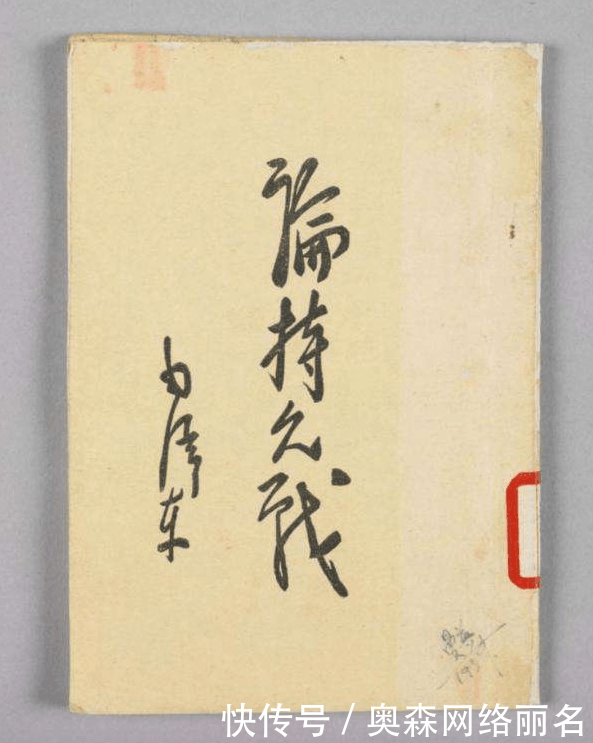 論持久戰
毛澤东
快传号／奥森网络丽名